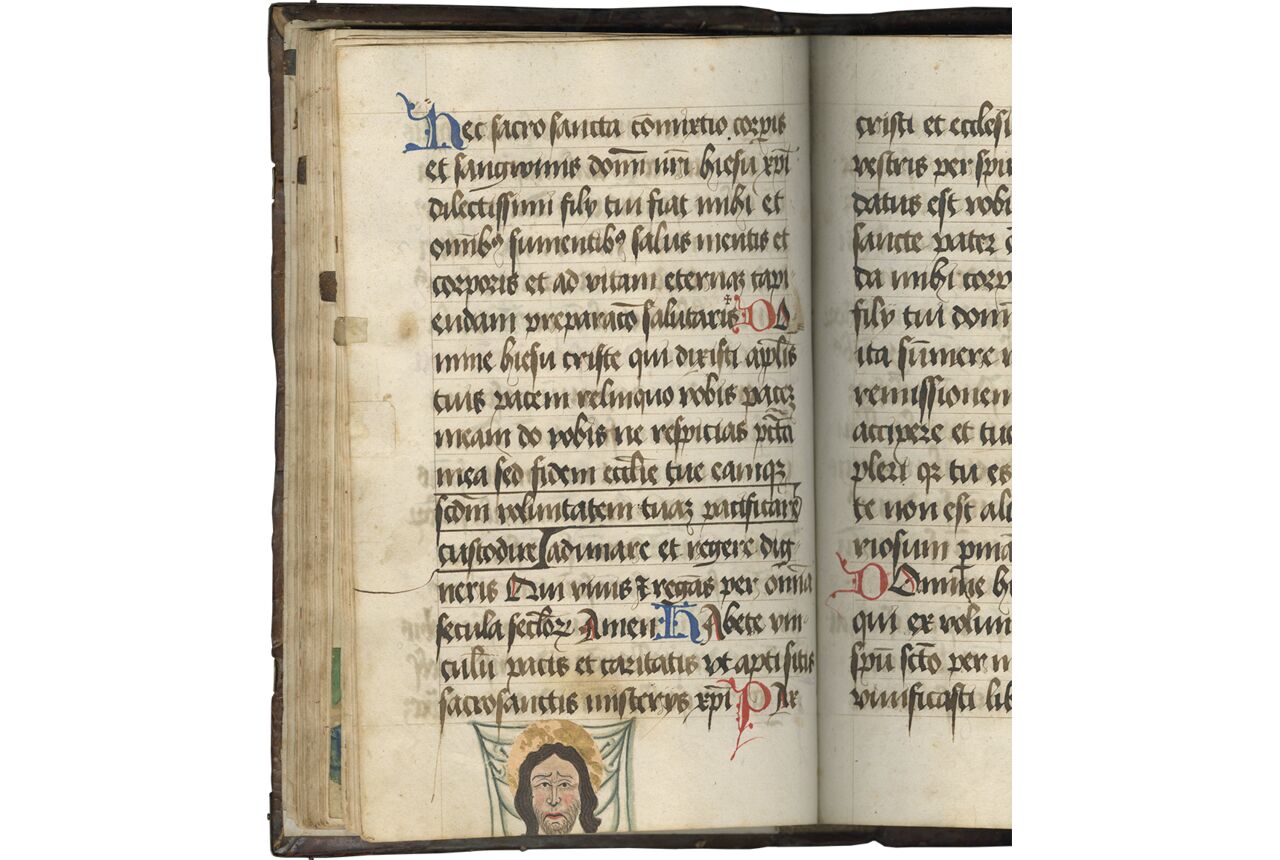 Hec sacro sancta cōmixtio corp̄is
et sangwinis domī nr̄i hiesu xp̄i
dilectissimi filij tui fiat mihi et
omībꝰ sumentibꝰ salus mentis et
corporis et ad vitam eternaꝫ capi-
endam preparacō salutaris DO
mine hiesu criste qui dixisti apl̄is
tuis pacem relinquo vobis paceꝫ
meam do vobis ne respicias pctā
mea sed fidem eccl̄ie tue eamqꝫ
scdm̄ voluntatem tuaꝫ pacificare
custodire adunare et regere dig-
neris Qui viuis ⁊ regas per omīa
secula seclōꝝ Amen HAbete vin-
culū pacis et caritatis vt apti sitis
sacrosanctis misterijs xp̄i PAx
cristi et ecclesi
vestris per spiri
datus est vobi
sancte pater
da mihi corp
filij tui domī
ita sūmere
remissionem
accipere et tuo
pleri qꝫ tu es
te non est ali
riosum pmā
DOmine hi
qui ex volun
spū scto per
viuificasti